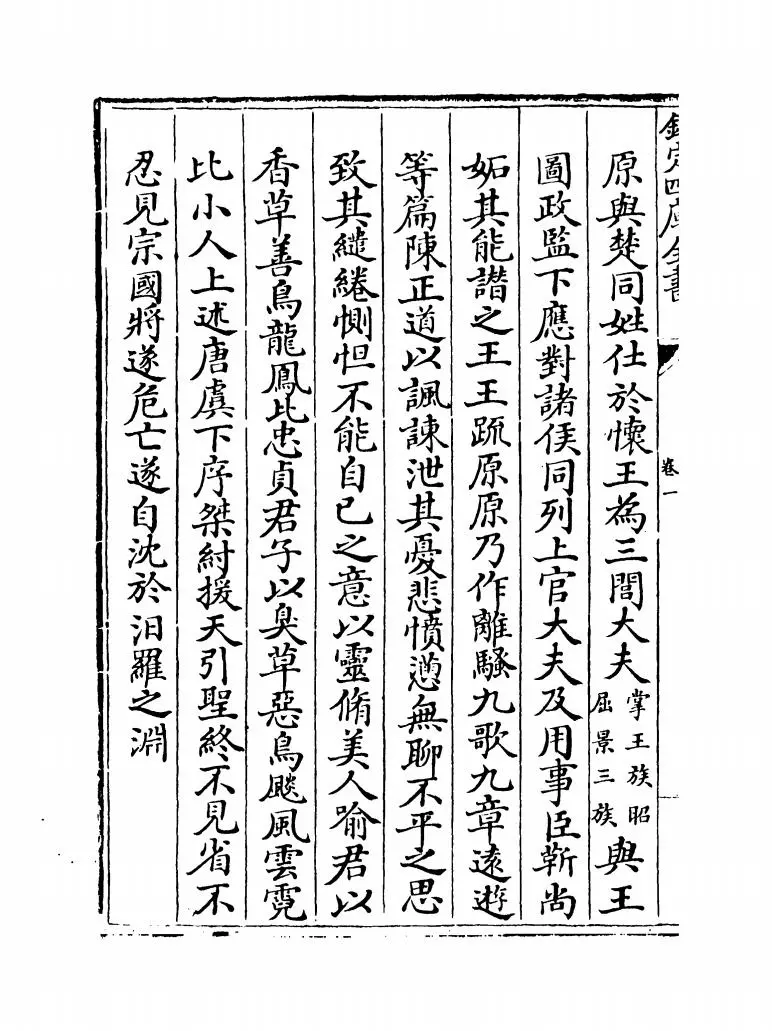 欽定四庫全書
卷一
原與楚同姓仕於懷王為三閭大夫掌王族昭屈景三族與王
圖政監下應對諸侯同列上官大夫及用事臣靳尚
妬其能譖之王王疏原原乃作離騷九歌九章遠遊
等篇陳正道以諷諫泄其憂悲憤懣無聊不平之思
致其繾綣惻怛不能自已之意以靈脩美人喻君以
香草善鳥龍鳳比忠貞君子以臭草惡鳥飈風雲霓
比小人上述唐虞下序桀紂援天引聖終不見省不
忍見宗國將遂危亡遂自沈於汨羅之淵